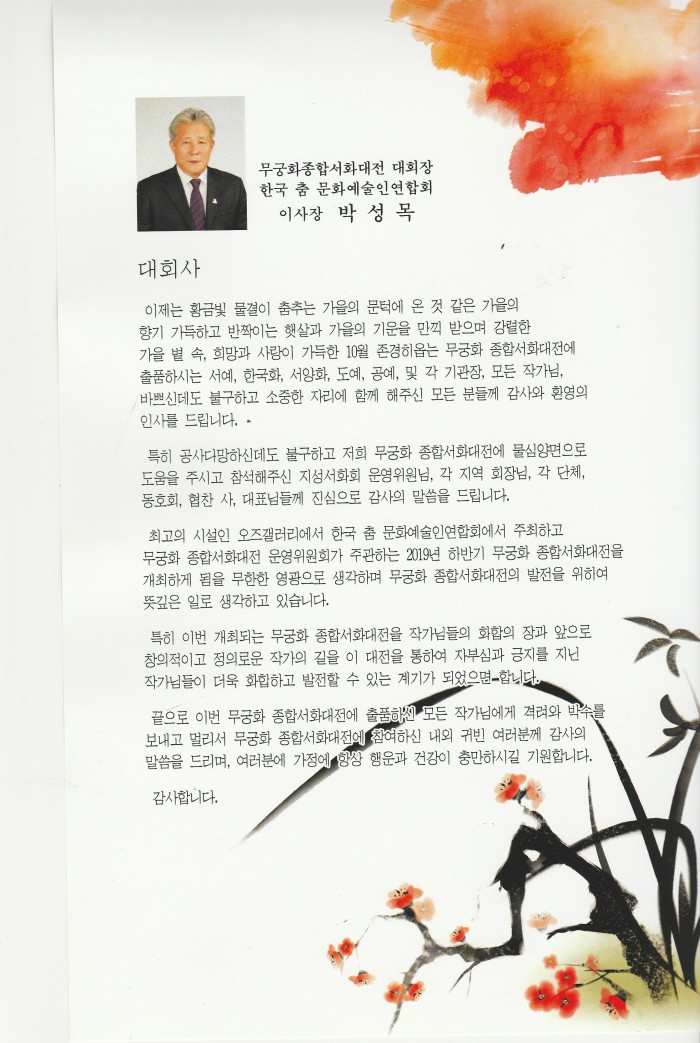 무궁화종합서화대전 대회장
한국 춤 문화예술인연합회
이사장 박 성 목
대회사
이제는 황금빛 물결이 춤추는 가을의 문턱에 온 것 같은 가을의
향기 가득하고 반짝이는 햇살과 가을의 기운을 만끽 받으며 강렬한
가을 볕 속, 희망과 사랑이 가득한 10월 존경히옵는 무궁화 종합서화대전에
출품하시는 서예, 한국화, 서양화, 도예, 공예, 및 각 기관장, 모든 작가님,
바쁘신데도 불구하고 소중한 자리에 함께 해주신 모든 분들께 감사와 환영의
인사를 드립니다.
특히 공사다망하신데도 불구하고 저희 무궁화 종합서화대전에 물심양면으로
도움을 주시고 참석해주신 지성서화회 운영위원님, 각 지역 회장님, 각 단체,
동호회, 협찬 사, 대표님들께 진심으로 감사의 말씀을 드립니다.
최고의 시설인 오즈갤러리에서 한국 춤 문화예술인연합회에서 주최하고
무궁화 종합서화대전 운영위원회가 주관하는 2019년 하반기 무궁화 종합서화대전을
개최하게 됨을 무한한 영광으로 생각하며 무궁화 종합서화대전의 발전을 위하여
뜻깊은 일로 생각하고 있습니다.
특히 이번 개최되는 무궁화 종합서화대전을 작가님들의 화합의 장과 앞으로
창의적이고 정의로운 작가의 길을 이 대전을 통하여 자부심과 긍지를 지닌
작가님들이 더욱 화합하고 발전할 수 있는 계기가 되었으면 합니다.
끝으로 이번 무궁화 종합서화대전에 출품하신 모든 작가님에게 격려와 박수를
보내고 멀리서 무궁화 종합서화대전에 참여하신 내외 귀빈 여러분께 감사의
말씀을 드리며, 여러분에 가정에 항상 행운과 건강이 충만하시길 기원합니다.
감사합니다.